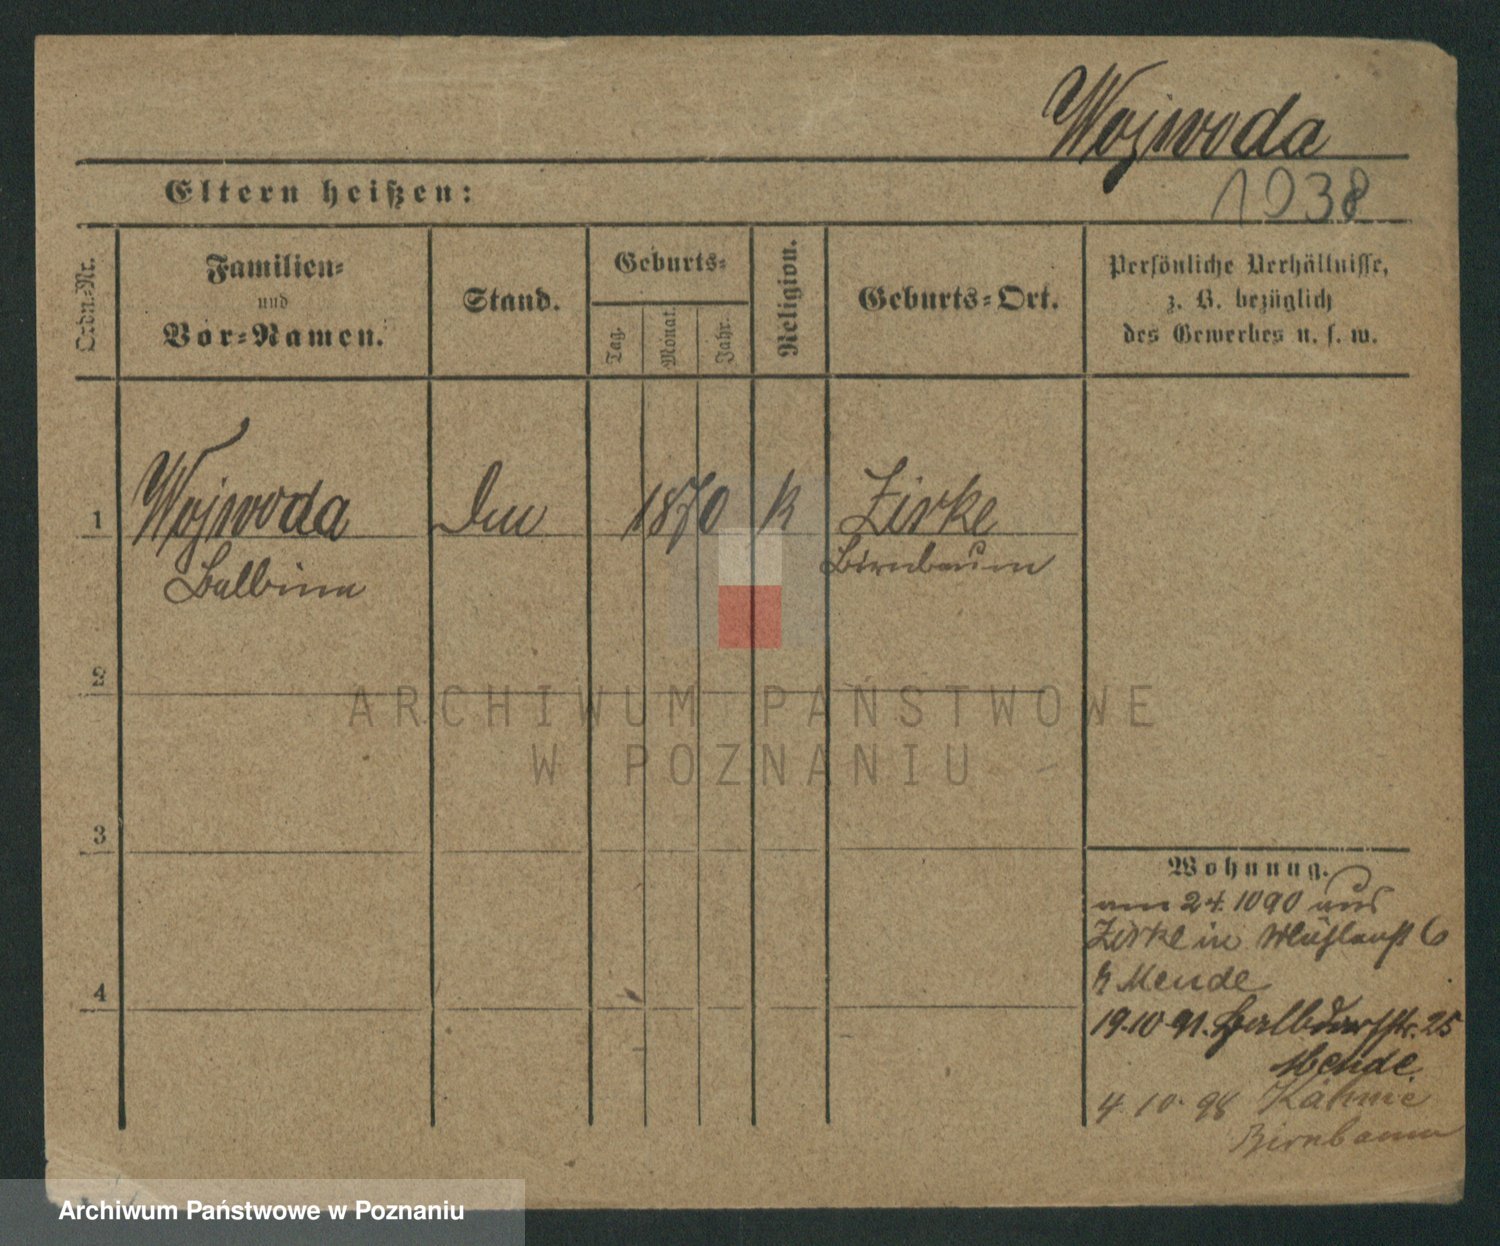 Wojwoda
1938
Eltern heißen:
Ordn.-Nr.
Familien-
und
Vor-Namen.
Stand.
Geburts-
Tag.
Monat.
Jahr.
Religion.
Geburts-Ort.
Persönliche Verhältnisse,
z. B. bezüglich
des Gewerbes u. s. w.
1 Wojwoda 1870 K Zirke
Balbina Birnbaum
2
ARCHIWUM PAŃSTWOWE
W POZNANIU
3
Wohnung.
am 24.10 90 aus
Zirke in Mühlenst 6
b Mende
4
19.10 91. Halbdorfstr. 25
Mende
4 10. 98 Kähme
Birnbaum
Archiwum Państwowe w Poznaniu